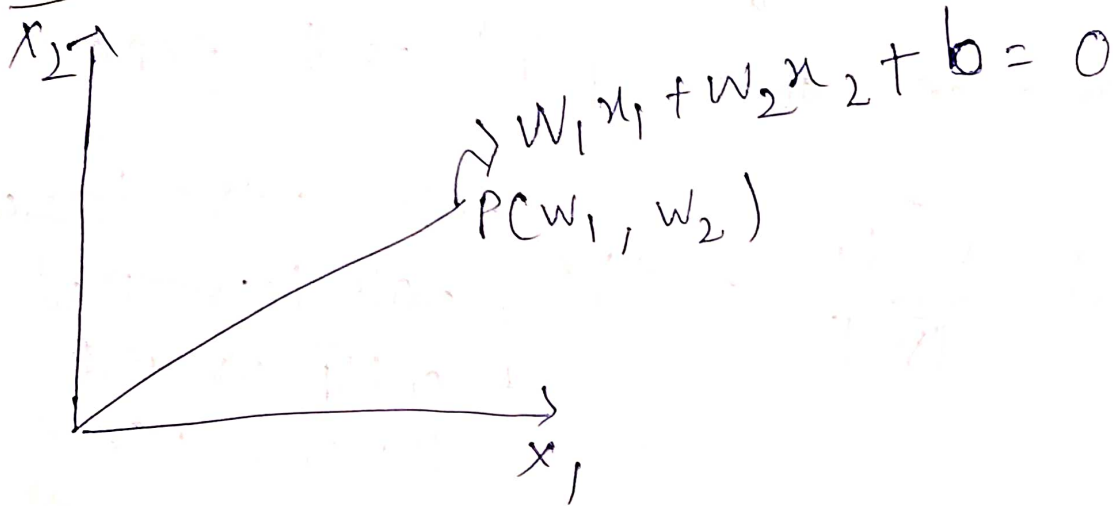 x₂
W₁x₁ + W₂x₂ + b = 0
P(W₁, W₂)
x₁